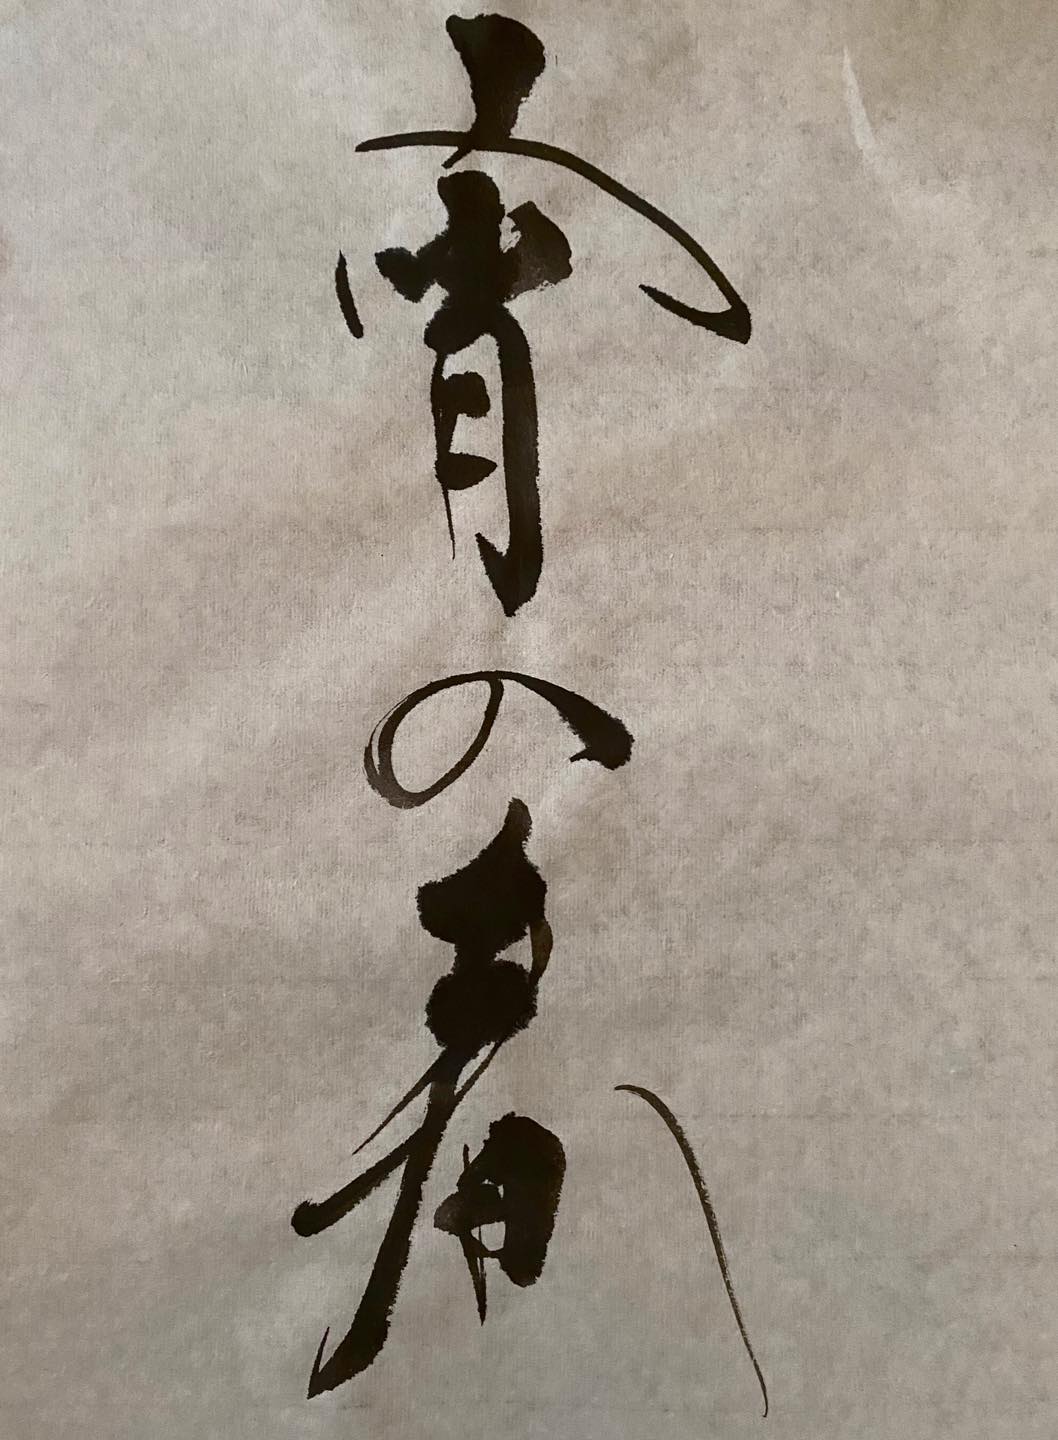 宵の春